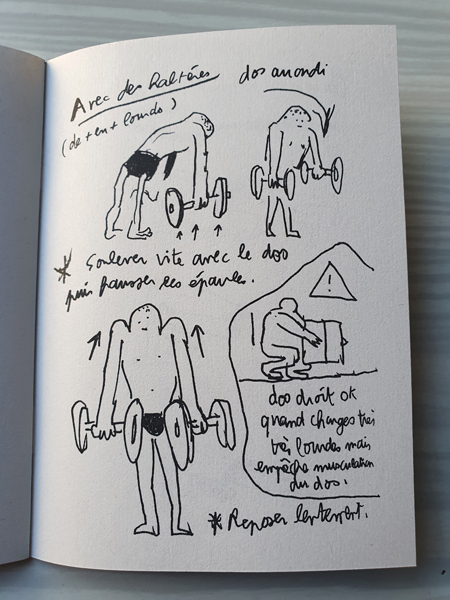 Avec des haltères
dos arrondi
(de + en + lourds)
* Soulever vite avec le dos
puis hausser les épaules.
!
dos droit ok
quand charges très
très lourdes mais
empêche musculation
du dos.
* Reposer lentement.